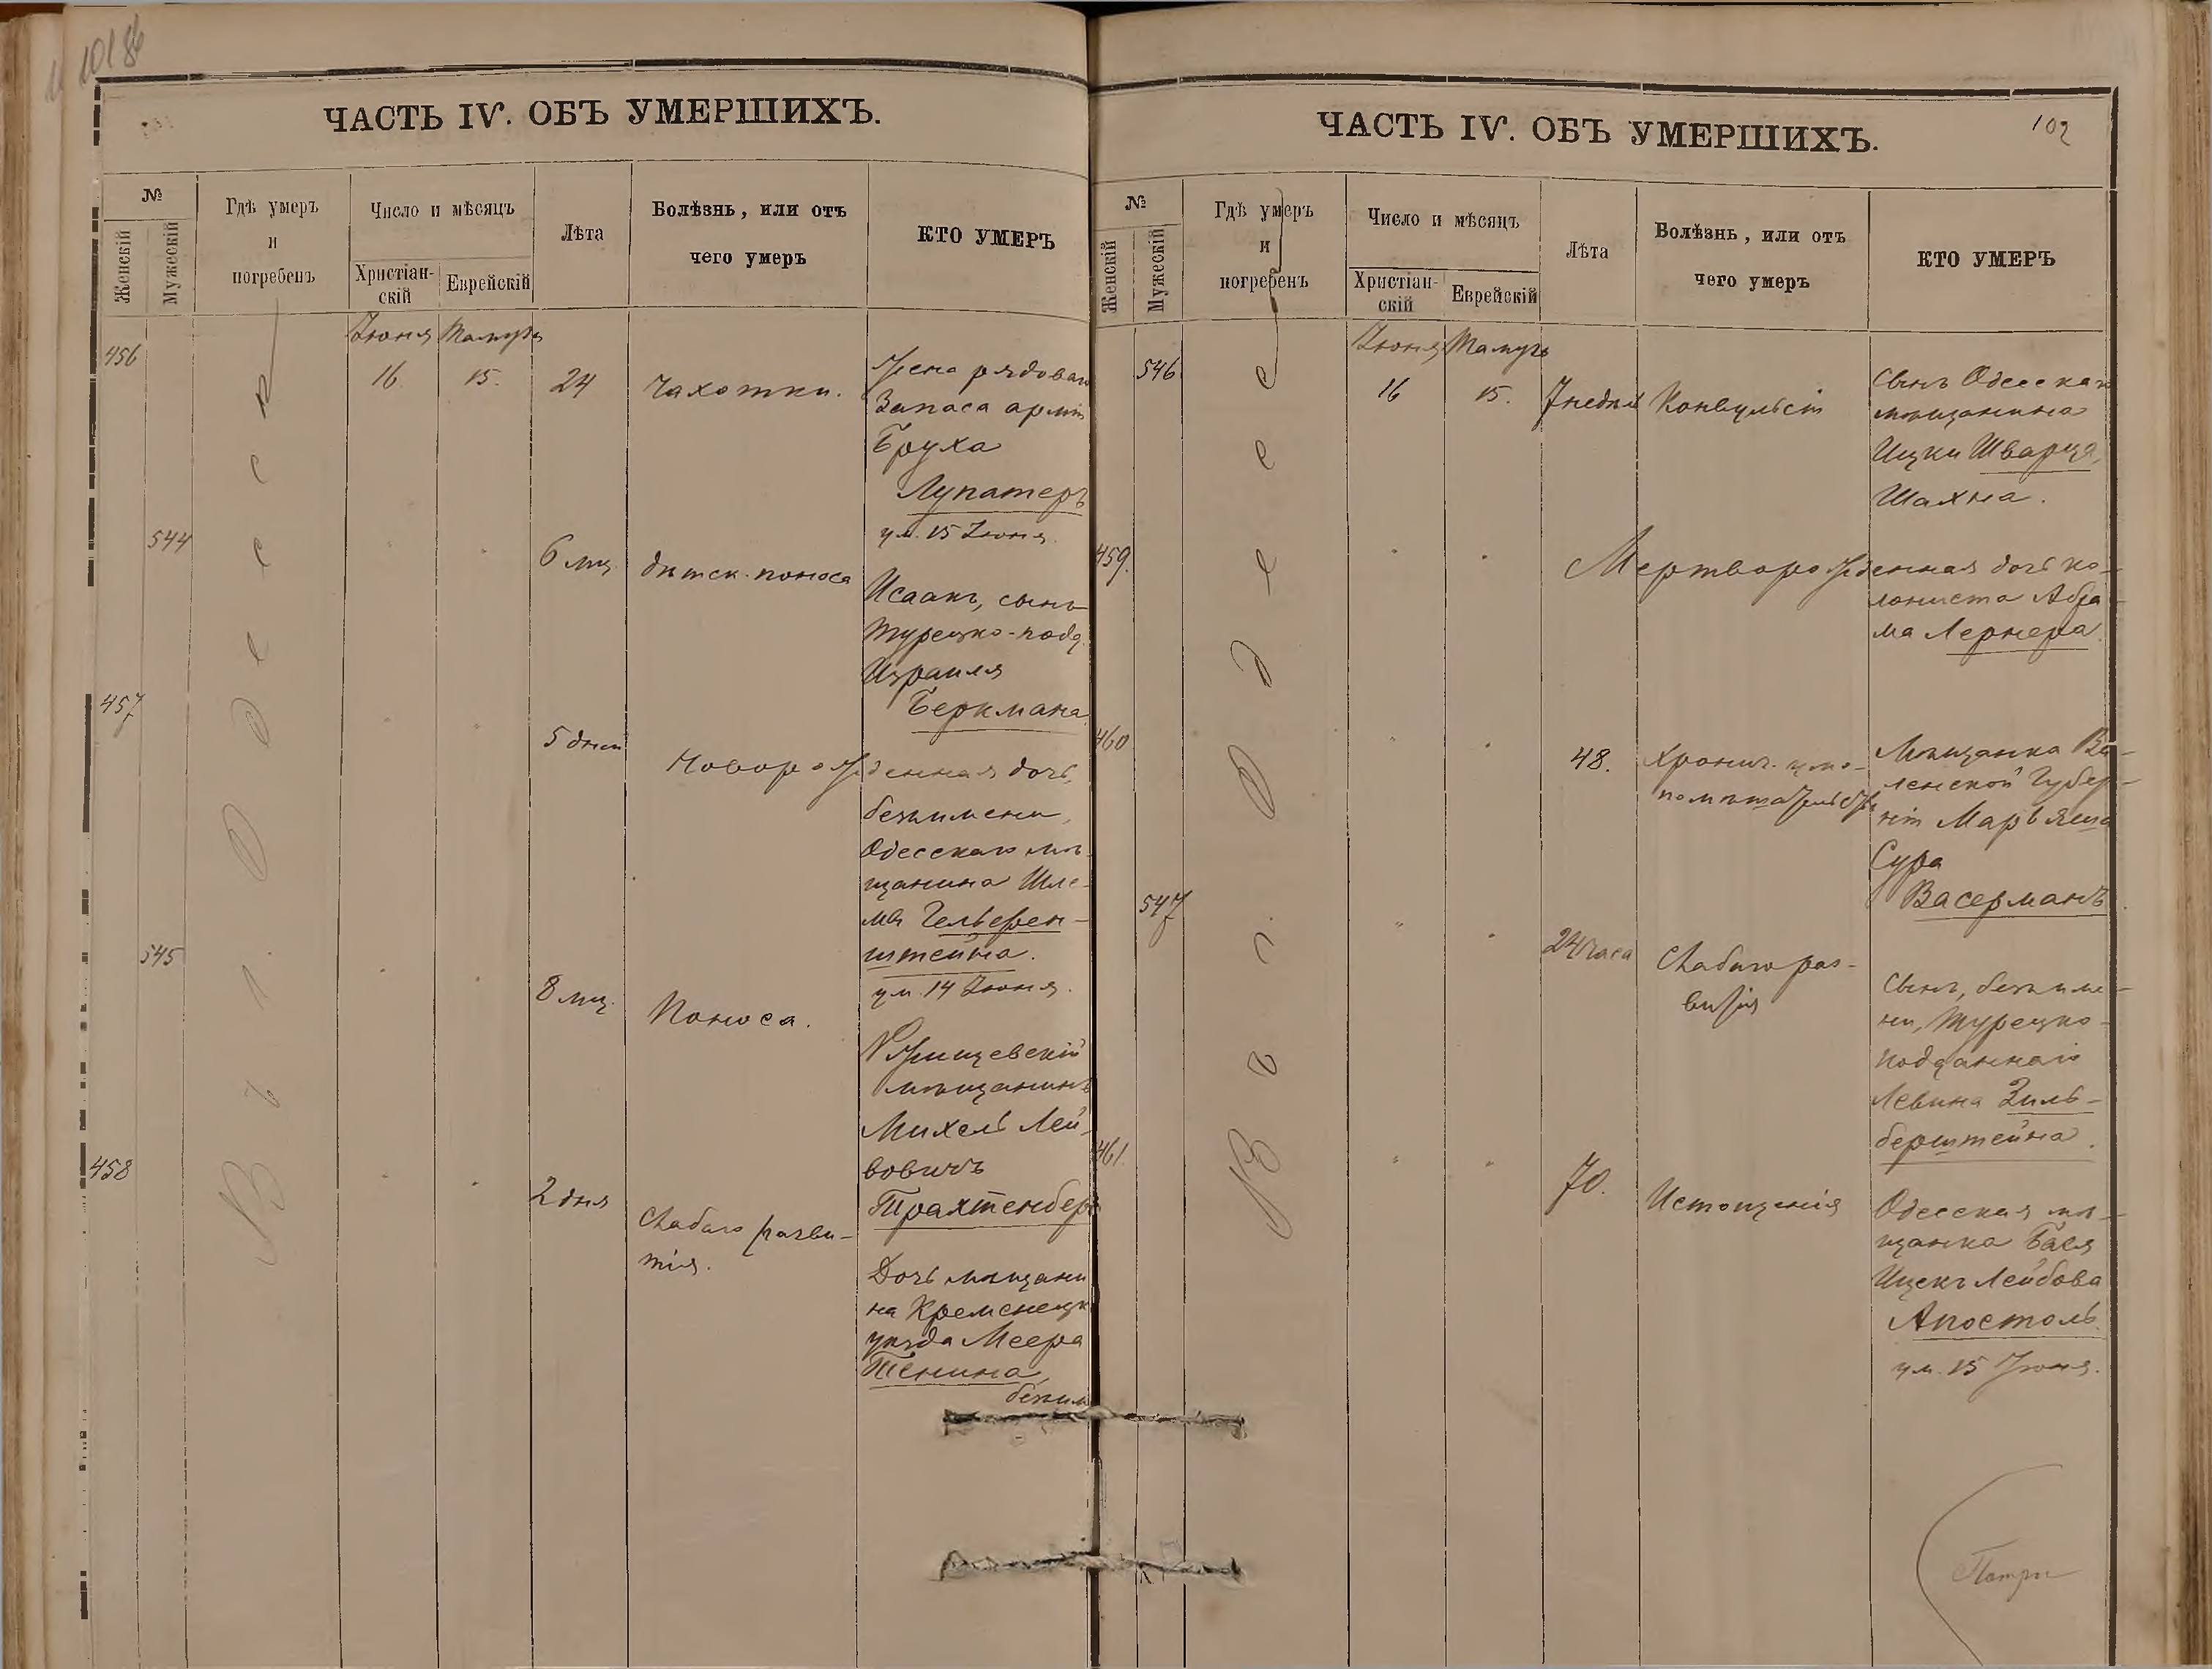 ЧАСТЬ IV. ОБЪ УМЕРШИХЪ.
№
Женскій
Мужескій
Гдѣ умеръ
и
погребенъ
Число и мѣсяцъ
Христіан-
скій
Еврейскій
Лѣта
Болѣзнь, или отъ
чего умеръ
КТО УМЕРЪ
Въ г. Одессѣ
Іюня Тамузъ
456
16. 15. 24 Чахотки.
Жена рядоваго
Запаса арміи
Бруха
Лупатеръ
ум. 15 Іюня.
544
6 мц. дѣтск. поноса
Исаакъ, сынъ
турецко-подд.
Израиля
Беркмана
457
5 дней
Новорожденная дочь,
безъимени,
Одесскаго мѣ-
щанина Шле-
мы
штейна.
ум. 14 Іюня.
545
8 мц. Поноса.
мѣщанинъ
Михель Лей-
бовичъ
Трахтенбергъ
458
2 дня Слабаго разви-
тія.
Дочь мѣщани
на Кременецк
уѣзда Меера
безъим
ЧАСТЬ IV. ОБЪ УМЕРШИХЪ.
102
№
Женскій
Мужескій
Гдѣ умеръ
и
погребенъ
Число и мѣсяцъ
Христіан-
скій
Еврейскій
Лѣта
Болѣзнь, или отъ
чего умеръ
КТО УМЕРЪ
Въ г. Одессе
Іюня Тамузъ
546
16 15. 7 недѣль Конвульсіи
Сынъ Одесскаго
мѣщанина
Ицки Шварца,
Шахна.
459.
Мертворожденная дочь ко-
лониста Абра-
ма Лернера.
460
48. Хронич. умо-
помѣшательства
Мѣщанка Ви-
ленской Губер-
ніи Марьяша
Сура
Васерманъ.
547
24 часа Слабаго раз-
витія
Сынъ, безъиме-
ни, Турецко-
подданнаго
Левина Зиль-
берштейна.
461.
70. Истощенія
Одесская мѣ-
щанка Бася
Ицекъ Лейбова
Апостолъ
ум. 15 Іюня.